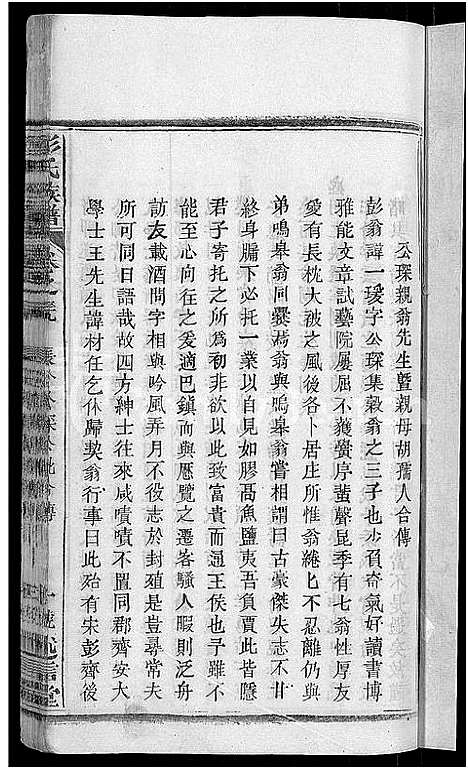 公琛親翁先生暨親母胡孺人合傳
彭翁諱一瑷字公琛集穀翁之三子也少負奇氣好讀書博
雅能文章試藝院屢屈不蕤黌序蜚聲昆季有七翁性厚友
愛有長枕大被之風後各卜居庄所惟翁綣匕不忍離仍與
弟鳴皋翁同爨焉翁與鳴皋翁嘗相謂曰古豪傑失志不甘
終身牖下必托一業以自見如膠鬲魚鹽夷吾負賈此皆隱
君子寄托之所爲初非欲以此致富貴而通王侯也予雖不
能至心向往之爰適巴鎮而與歷覽之遷客騷人暇則泛舟
訪友載酒問字相與吟風弄月不役志於封殖是豈尋常夫
所可同日語哉故四方紳士往來咸嘖嘖不置同郡齊安大
學士王先生諱材任乞休歸契翁行事曰此殆有宋彭齊後
彭氏族譜